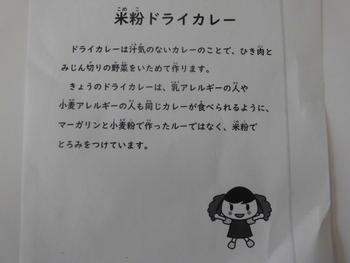 米粉ドライカレー
ドライカレーは汁気のないカレーのことで、ひき肉と
みじん切りの野菜をいためて作ります。
きょうのドライカレーは、乳アレルギーの人や
小麦アレルギーの人も同じカレーが食べられるように、
マーガリンと小麦粉で作ったルーではなく、米粉で
とろみをつけています。